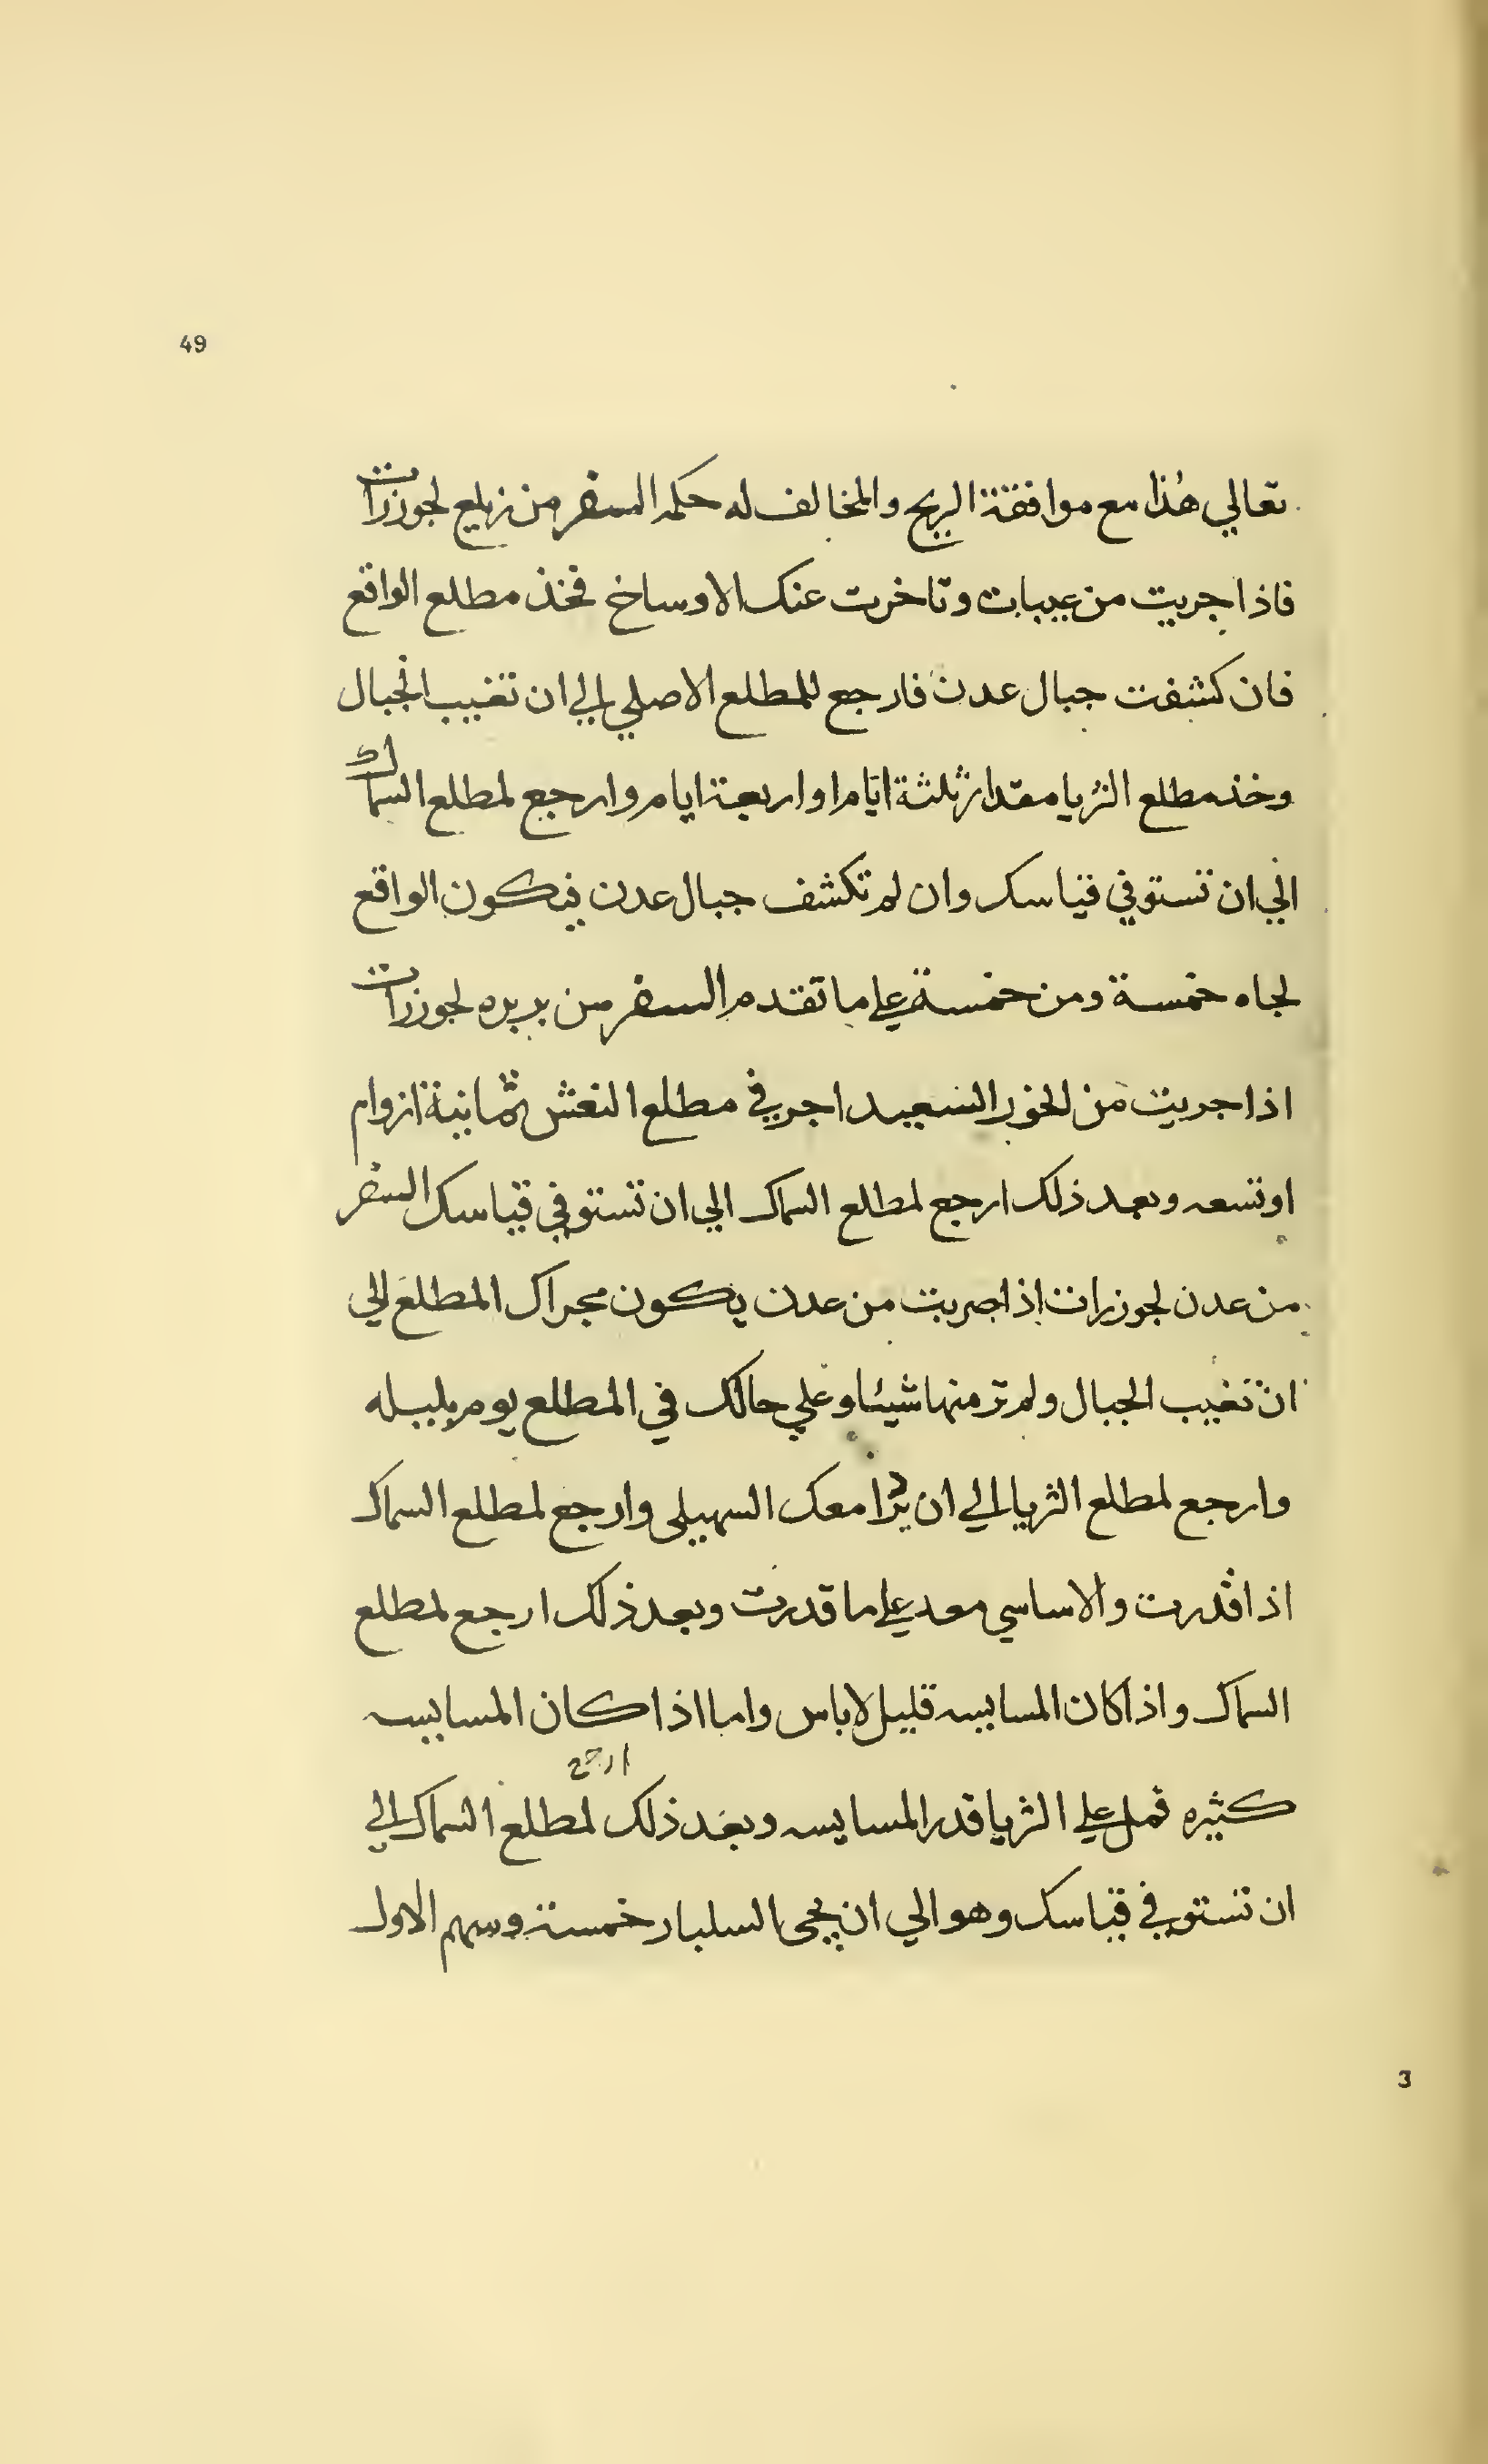 49
تعالي هذا مع موافقة الريح والمخالف له حكمه السفر من زيلع لجوزرات
فاذا جريت من عيبات وتاخرت عنك الاوساخ فخذ مطلع الواقع
فان كشفت جبال عدن فارجع للمطلع الاصلي الي ان تغيب الجبال
وخذ مطلع الثريا مقدار ثلثة ايام او اربعة ايام وارجع لمطلع السماك
الي ان تستوفي قياسك وان لم تكشف جبال عدن فيكون الواقع
لجاه خمسة ومن خمسة علي ما تقدم السفر من بربره لجوزرات
اذا جريت من الخور السعيد اجر في مطلع النعش ثمانية ازوام
او تسعه وبعد ذلك ارجع لمطلع السماك الي ان تستوفي قياسك السفر
من عدن لجوزرات اذا اجريت من عدن يكون مجراك المطلع الي
ان تغيب الجبال ولم تر منها شيئا وعلي حالك في المطلع يوم بليله
وارجع لمطلع الثريا الي ان يترا معك السهيلي وارجع لمطلع السماك
اذا قدرت والاساسي معد علي ما قدرت وبعد ذلك ارجع لمطلع
السماك واذا كان المسايسه قليل لاباس واما اذا كان المسايسه
كثيره فمل علي الثريا قدر المسايسه وبعد ذلك ارجع لمطلع السماك الي
ان تستوفي قياسك وهو الي ان يجي السلبار خمسة وسهم الاول
3